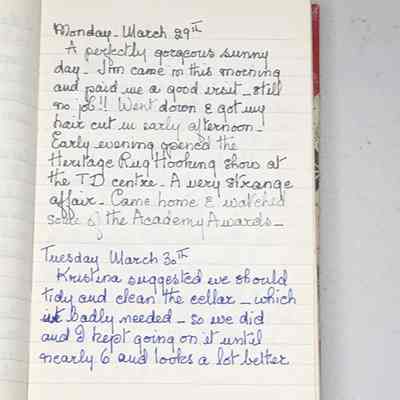 Monday - March 29th
A perfectly gorgeous sunny
day - Jim came in this morning
and paid me a good visit - still
no job!! Went down & got my
hair cut in early afternoon -
Early evening opened the
Heritage Rug Hooking show at
the TD centre - A very strange
affair - Came home & watched
some of the Academy Awards -
Tuesday March 30th
Kristina suggested we should
tidy and clean the cellar - which
it badly needed - so we did
and I kept going on it until
nearly 6 and looks a lot better